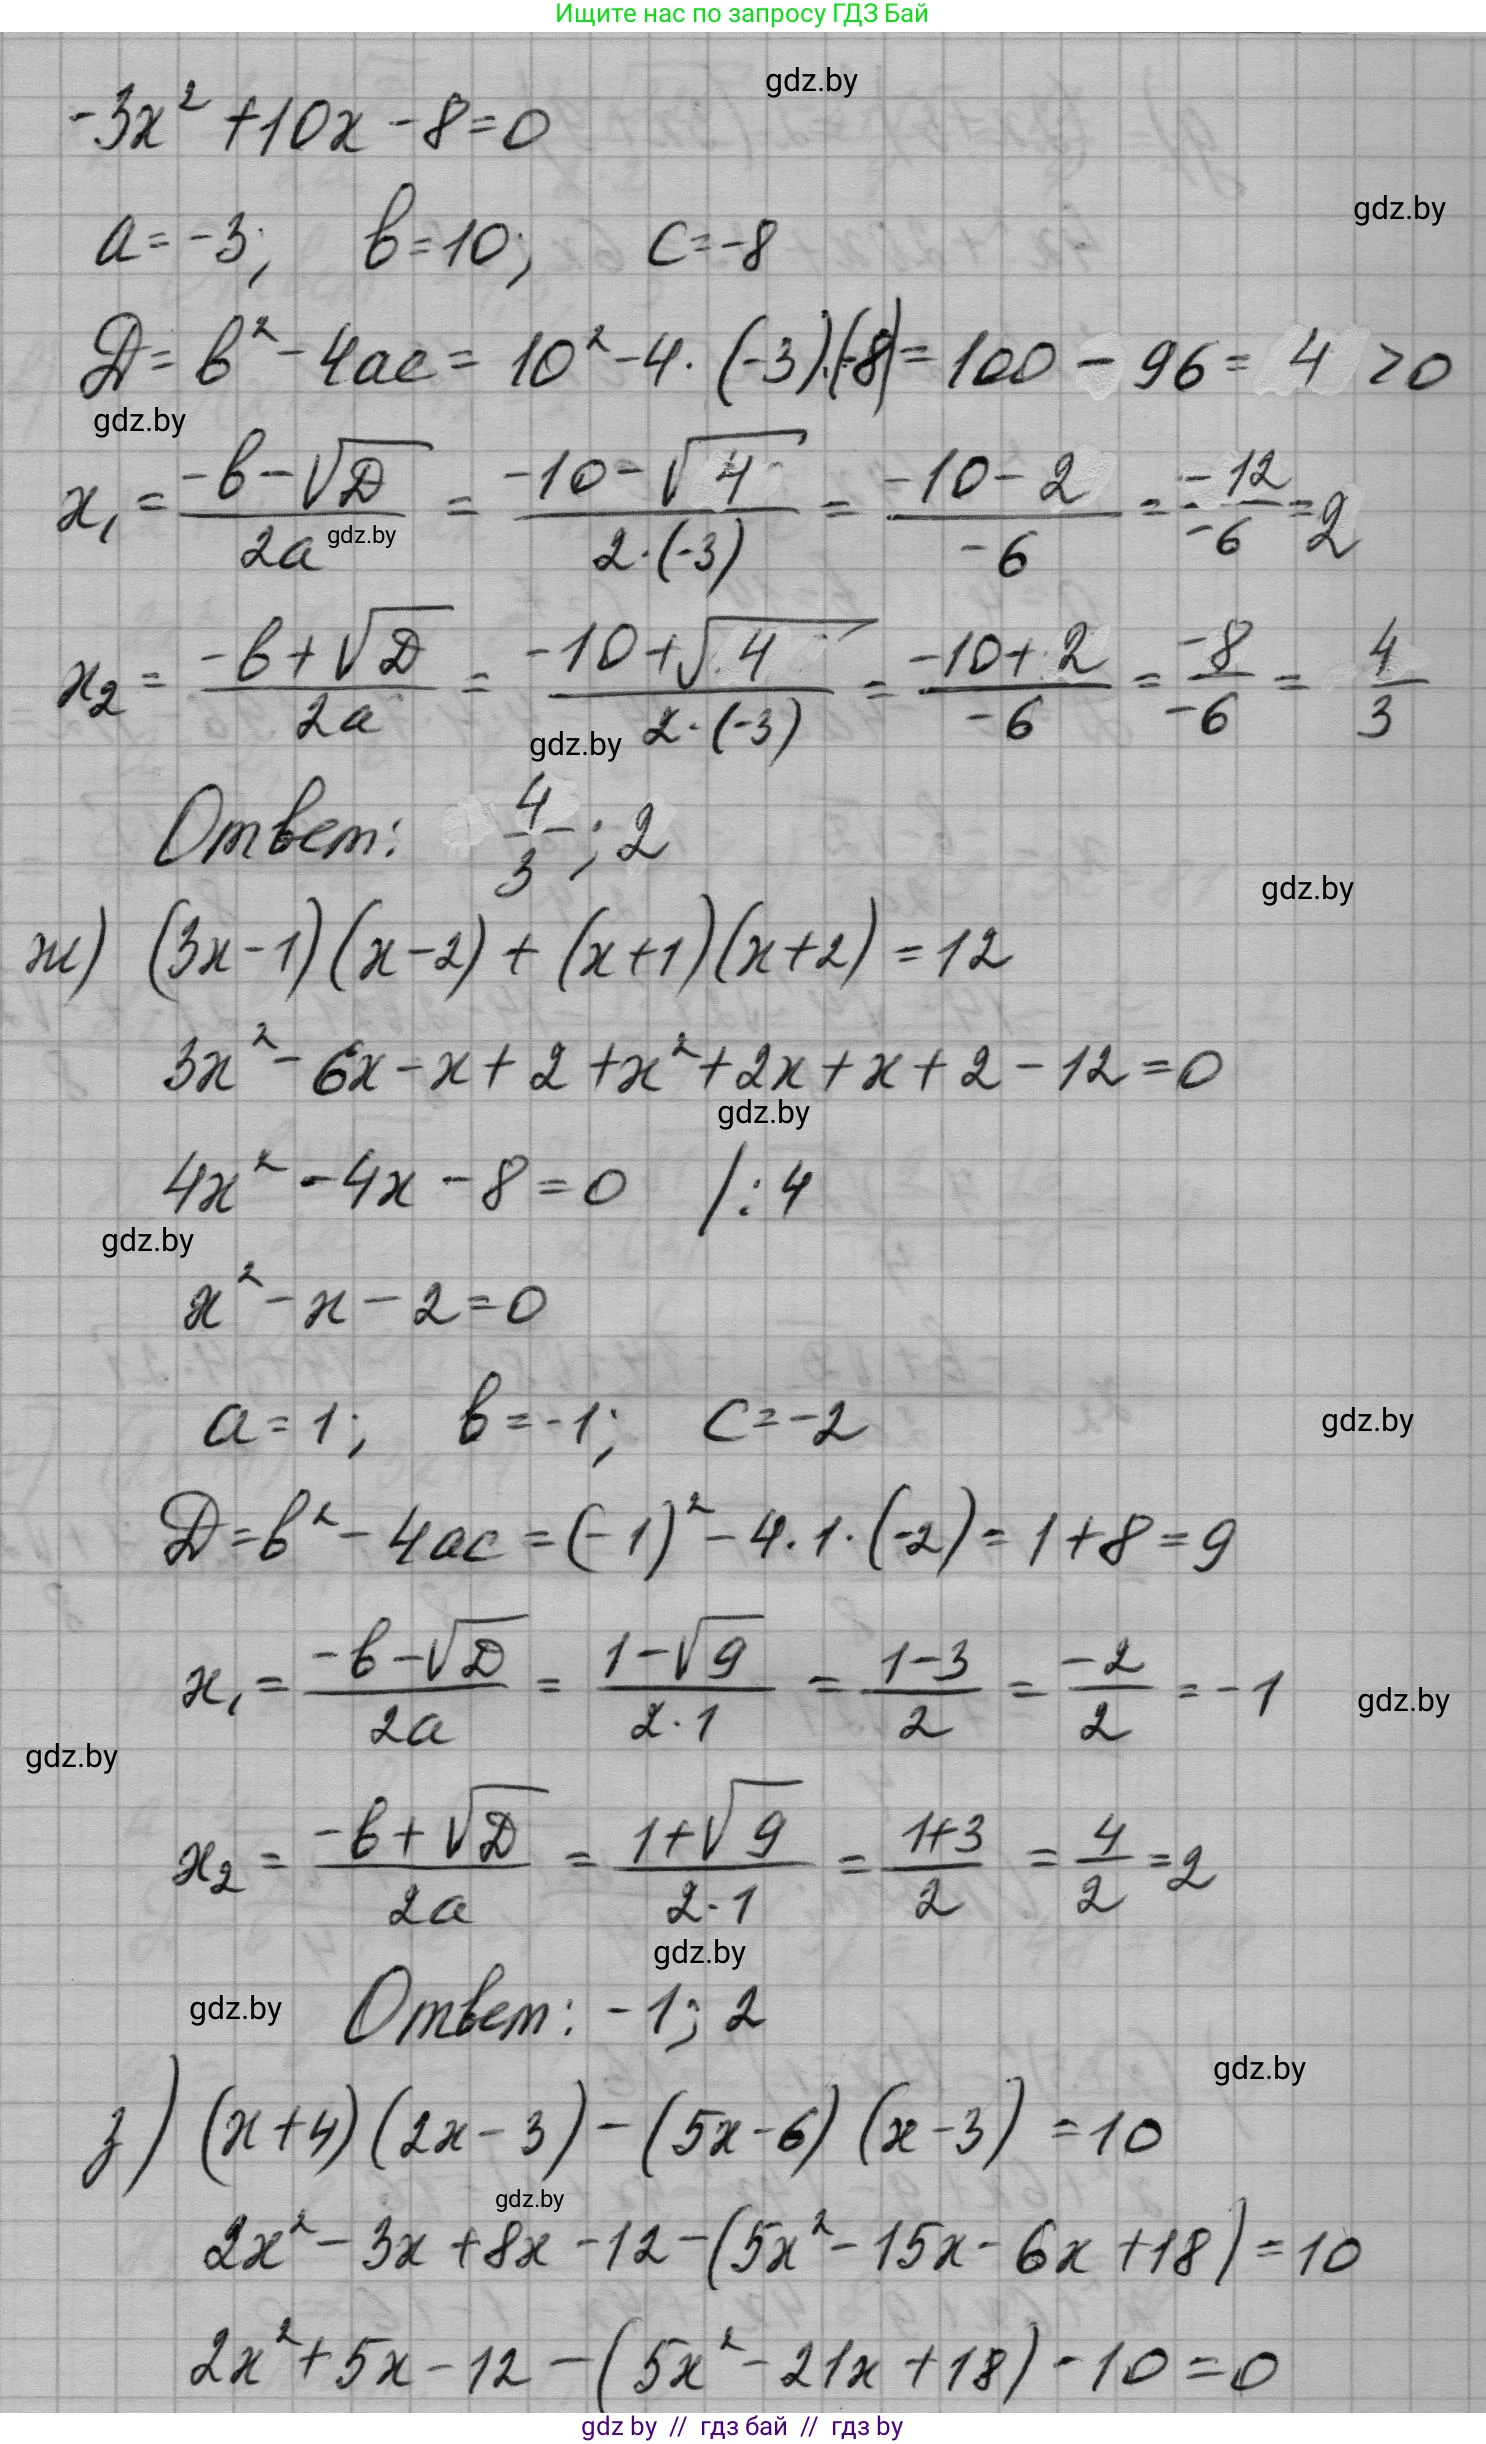 Ищите нас по запросу ГДЗ Бай
gdz.by
-3x² + 10x - 8 = 0
gdz.by
a = -3; b = 10; c = -8
D = b² - 4ac = 10² - 4 · (-3) · (-8) = 100 - 96 = 4 > 0
gdz.by
x₁ = (-b - √D)/(2a) = (-10 - √4)/(2 · (-3)) = (-10 - 2)/(-6) = (-12)/(-6) = 2
gdz.by
x₂ = (-b + √D)/(2a) = (-10 + √4)/(2 · (-3)) = (-10 + 2)/(-6) = (-8)/(-6) = 4/3
gdz.by
Ответ: 4/3; 2
gdz.by
ж) (3x - 1)(x - 2) + (x + 1)(x + 2) = 12
3x² - 6x - x + 2 + x² + 2x + x + 2 - 12 = 0
gdz.by
4x² - 4x - 8 = 0 /: 4
gdz.by
x² - x - 2 = 0
a = 1; b = -1; c = -2
gdz.by
D = b² - 4ac = (-1)² - 4 · 1 · (-2) = 1 + 8 = 9
x₁ = (-b - √D)/(2a) = (1 - √9)/(2 · 1) = (1 - 3)/2 = (-2)/2 = -1
gdz.by
gdz.by
x₂ = (-b + √D)/(2a) = (1 + √9)/(2 · 1) = (1 + 3)/2 = 4/2 = 2
gdz.by
gdz.by
Ответ: -1; 2
gdz.by
з) (x + 4)(2x - 3) - (5x - 6)(x - 3) = 10
gdz.by
2x² - 3x + 8x - 12 - (5x² - 15x - 6x + 18) = 10
2x² + 5x - 12 - (5x² - 21x + 18) - 10 = 0
gdz by // гдз бай // гдз by